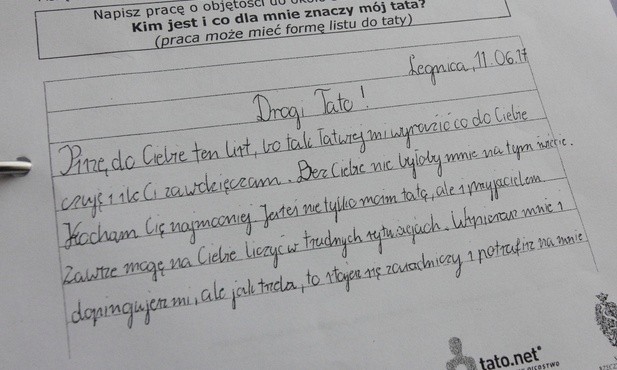 Napisz pracę o objętości do około
Kim jest i co dla mnie znaczy mój tata?
(praca może mieć formę listu do taty)
Legnica, 11.06.17
Drogi Tato!
Piszę do Ciebie ten list, bo tak łatwiej mi wyrazić co do Ciebie
czuję i ile Ci zawdzięczam. Bez Ciebie nie byłoby mnie na tym świecie.
Kocham Cię najmocniej. Jesteś nie tylko moim tatą, ale i przyjacielem.
Zawsze mogę na Ciebie liczyć w trudnych sytuacjach. Wspierasz mnie i
dopingujesz mi, ale jak trzeba, to stajesz się zasadniczy i potrafisz na mnie
tato.net